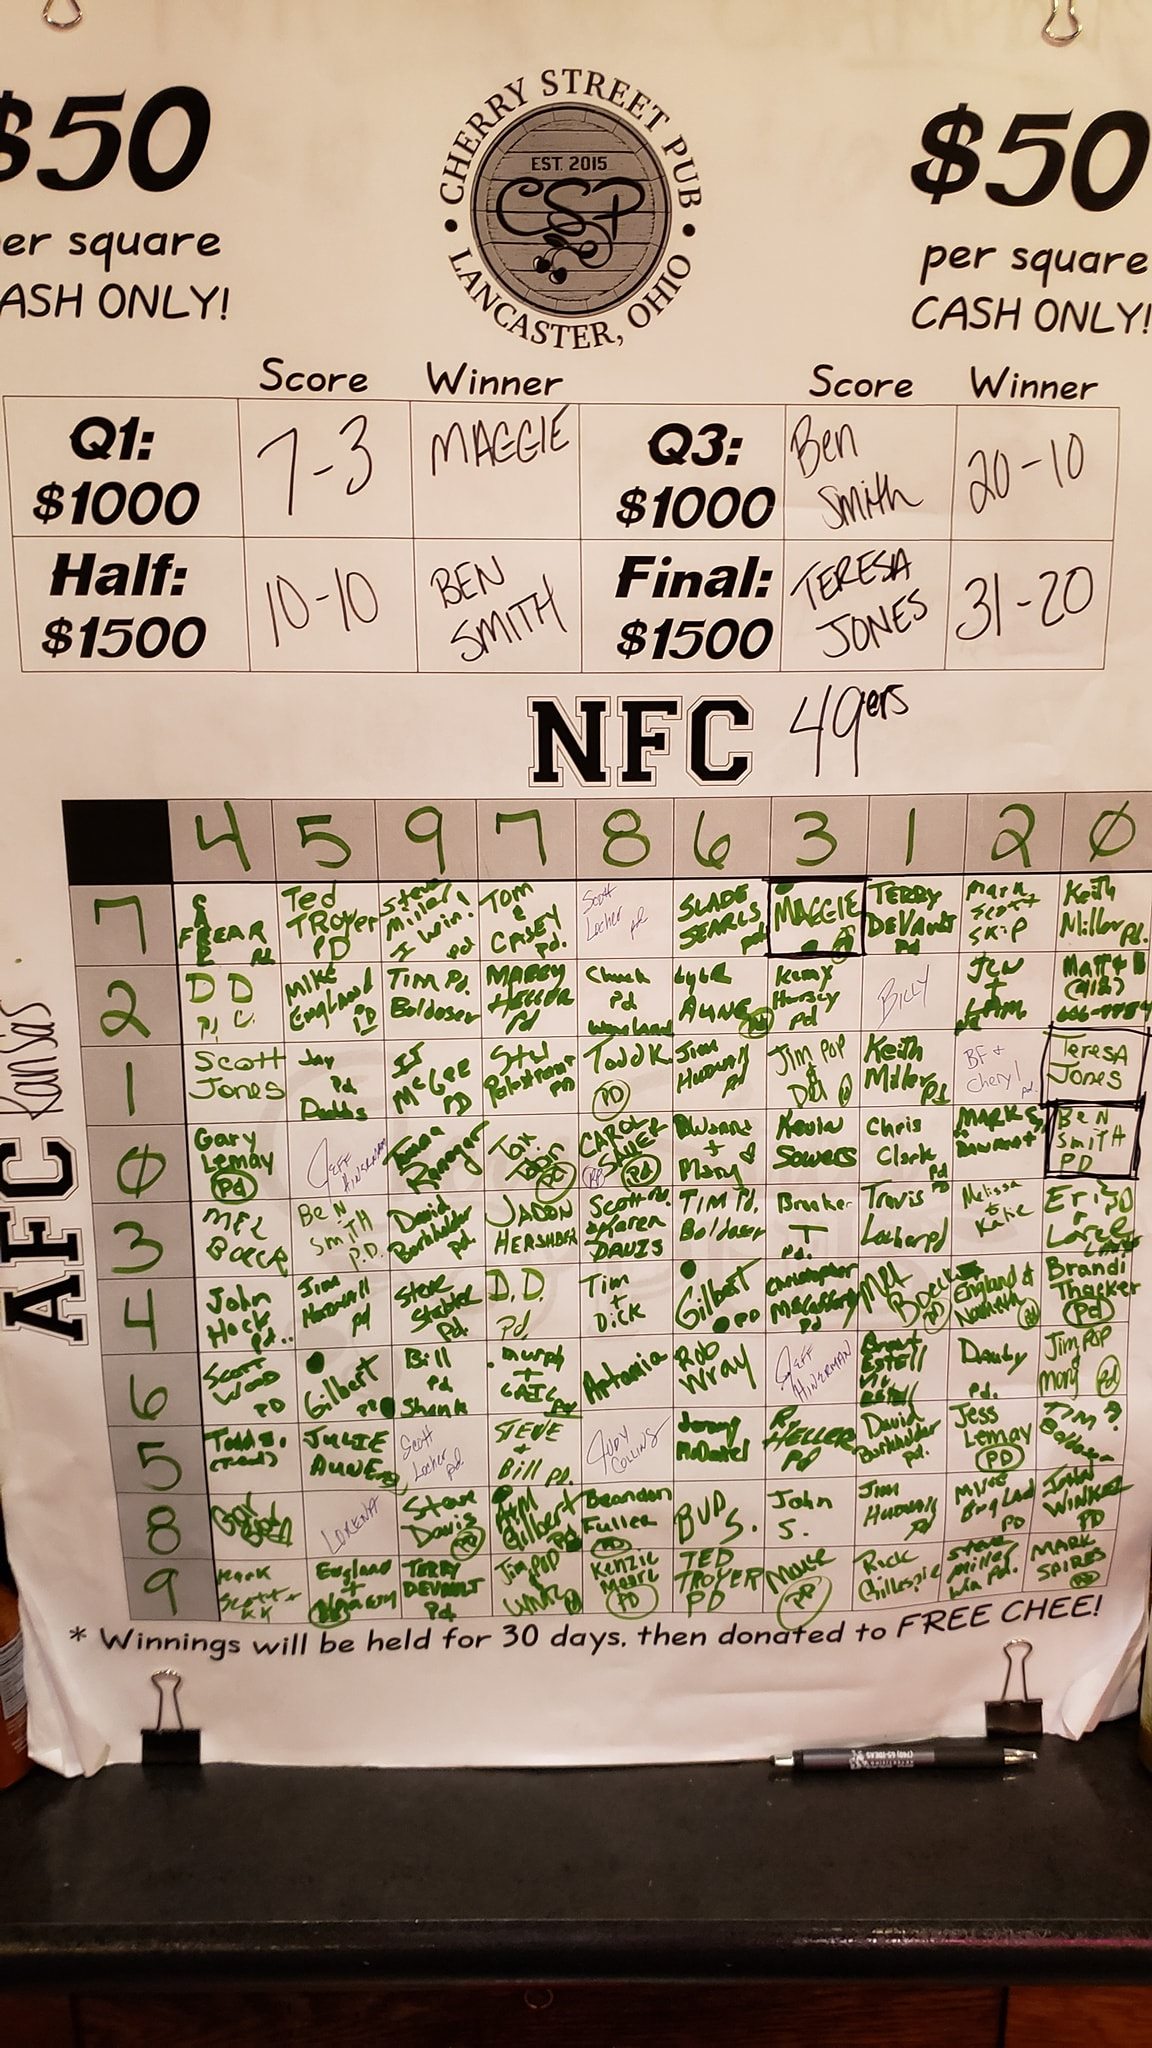 $50
er square
ASH ONLY!
CHERRY STREET PUB
EST. 2015
CSP
LANCASTER, OHIO
$50
per square
CASH ONLY!
Score Winner Score Winner
Q1: $1000 7-3 MAGGIE Q3: $1000 Ben Smith 20-10
Half: $1500 10-10 BEN SMITH Final: $1500 TERESA JONES 31-20
NFC 49ers
AFC Kansas
4 5 9 7 8 6 3 1 2 0
7
Ted TROYER PD
Steve Miller I Win! pd
TOM & CASEY Pd.
Scott Locher pd
SLADE SEARLS pd
MAGGIE
TERRY DEVAULT Pd
Mark Scott SKIP
Keith Miller Pd.
2
D D
MIKE England PD
TIM Pd. Boldoser
MARRY HELLER Pd
Chuck Pd
Pd
BILLY
1
Scott Jones
Jay Pd
MCGEE PD
Todd K. PD
Jim Pd
JIM POP
Keith Miller Pd
BF + Cheryl pd.
Teresa Jones
0
Gary Lemay Pd
JEFF HINERMAN
CAROL PD
+ Mary
Kevin Sowers
Chris Clark Pd
MARK
BEN SMITH PD
3
BEN SMITH P.D.
David Burkholder pd.
JADON HERSHBER
Scott + Karen DAVIS
TIM Pd. Boldoser
Brooker T Pd.
Travis Locher pd
Melissa & Katie
4
John Hock pd..
Jim pd
Steve Pd.
D.D. Pd.
Tim + Dick
Gilbert PD
Christopher Pd
Mel PD
England &
Brandi Thacker Pd
6
Scott Wood PD
Gilbert
Bill Pd Shank
Antonia
Rob Wray
JEFF HINERMAN
Danby Pd.
Jim POP Mary Pd
5
JULIE AUNE
Scott Locher pd
STEVE + Bill Pd.
JUDY COLLINS
R. HELLER PD
David Burkholder pd.
Jess Lemay PD
8
LORENA
Steve Davis PD
Gilbert Pd
Brandon Fuller PD
BUD S.
John S.
Jim Pd
Mike England PD
JOHN WINKEL PD
9
Mark Scott +
England +
TERRY DEVAULT Pd
Jim POP
Kenzie Moore PD
TED TROYER PD
Rick Gillespie
Steve Miller Win Pd.
MARK SPIRES PD
* Winnings will be held for 30 days, then donated to FREE CHEE!